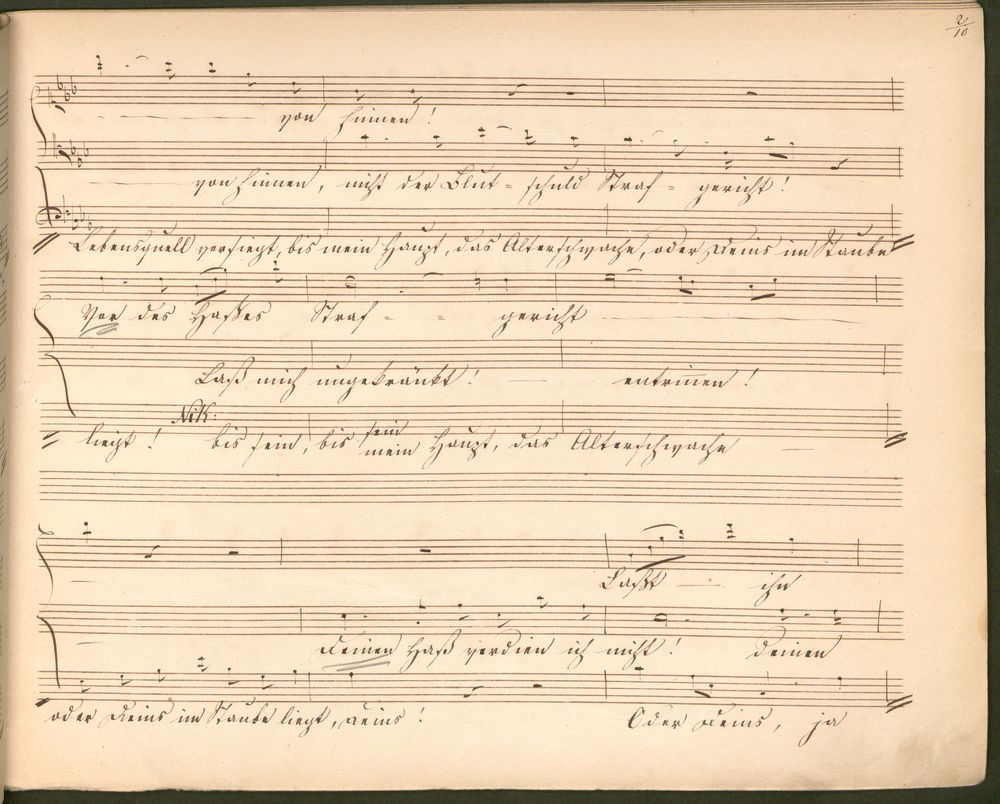 2/10
von hinnen!
von hinnen, nicht der Blut - schuld Straf - gericht!
Lebensquell versiegt, bis mein Haupt, das Altersschwache, oder Deins im Staube
Vor des Hasses Straf - - gericht
Laß mich ungekränkt! entrinnen!
Nik:
sein
liegt! bis sein, bis mein Haupt, das Altersschwache
Laßt ihn
Deinen Haß verdien ich nicht! deinen
oder Deins im Staube liegt, Deins! Oder Deins, ja